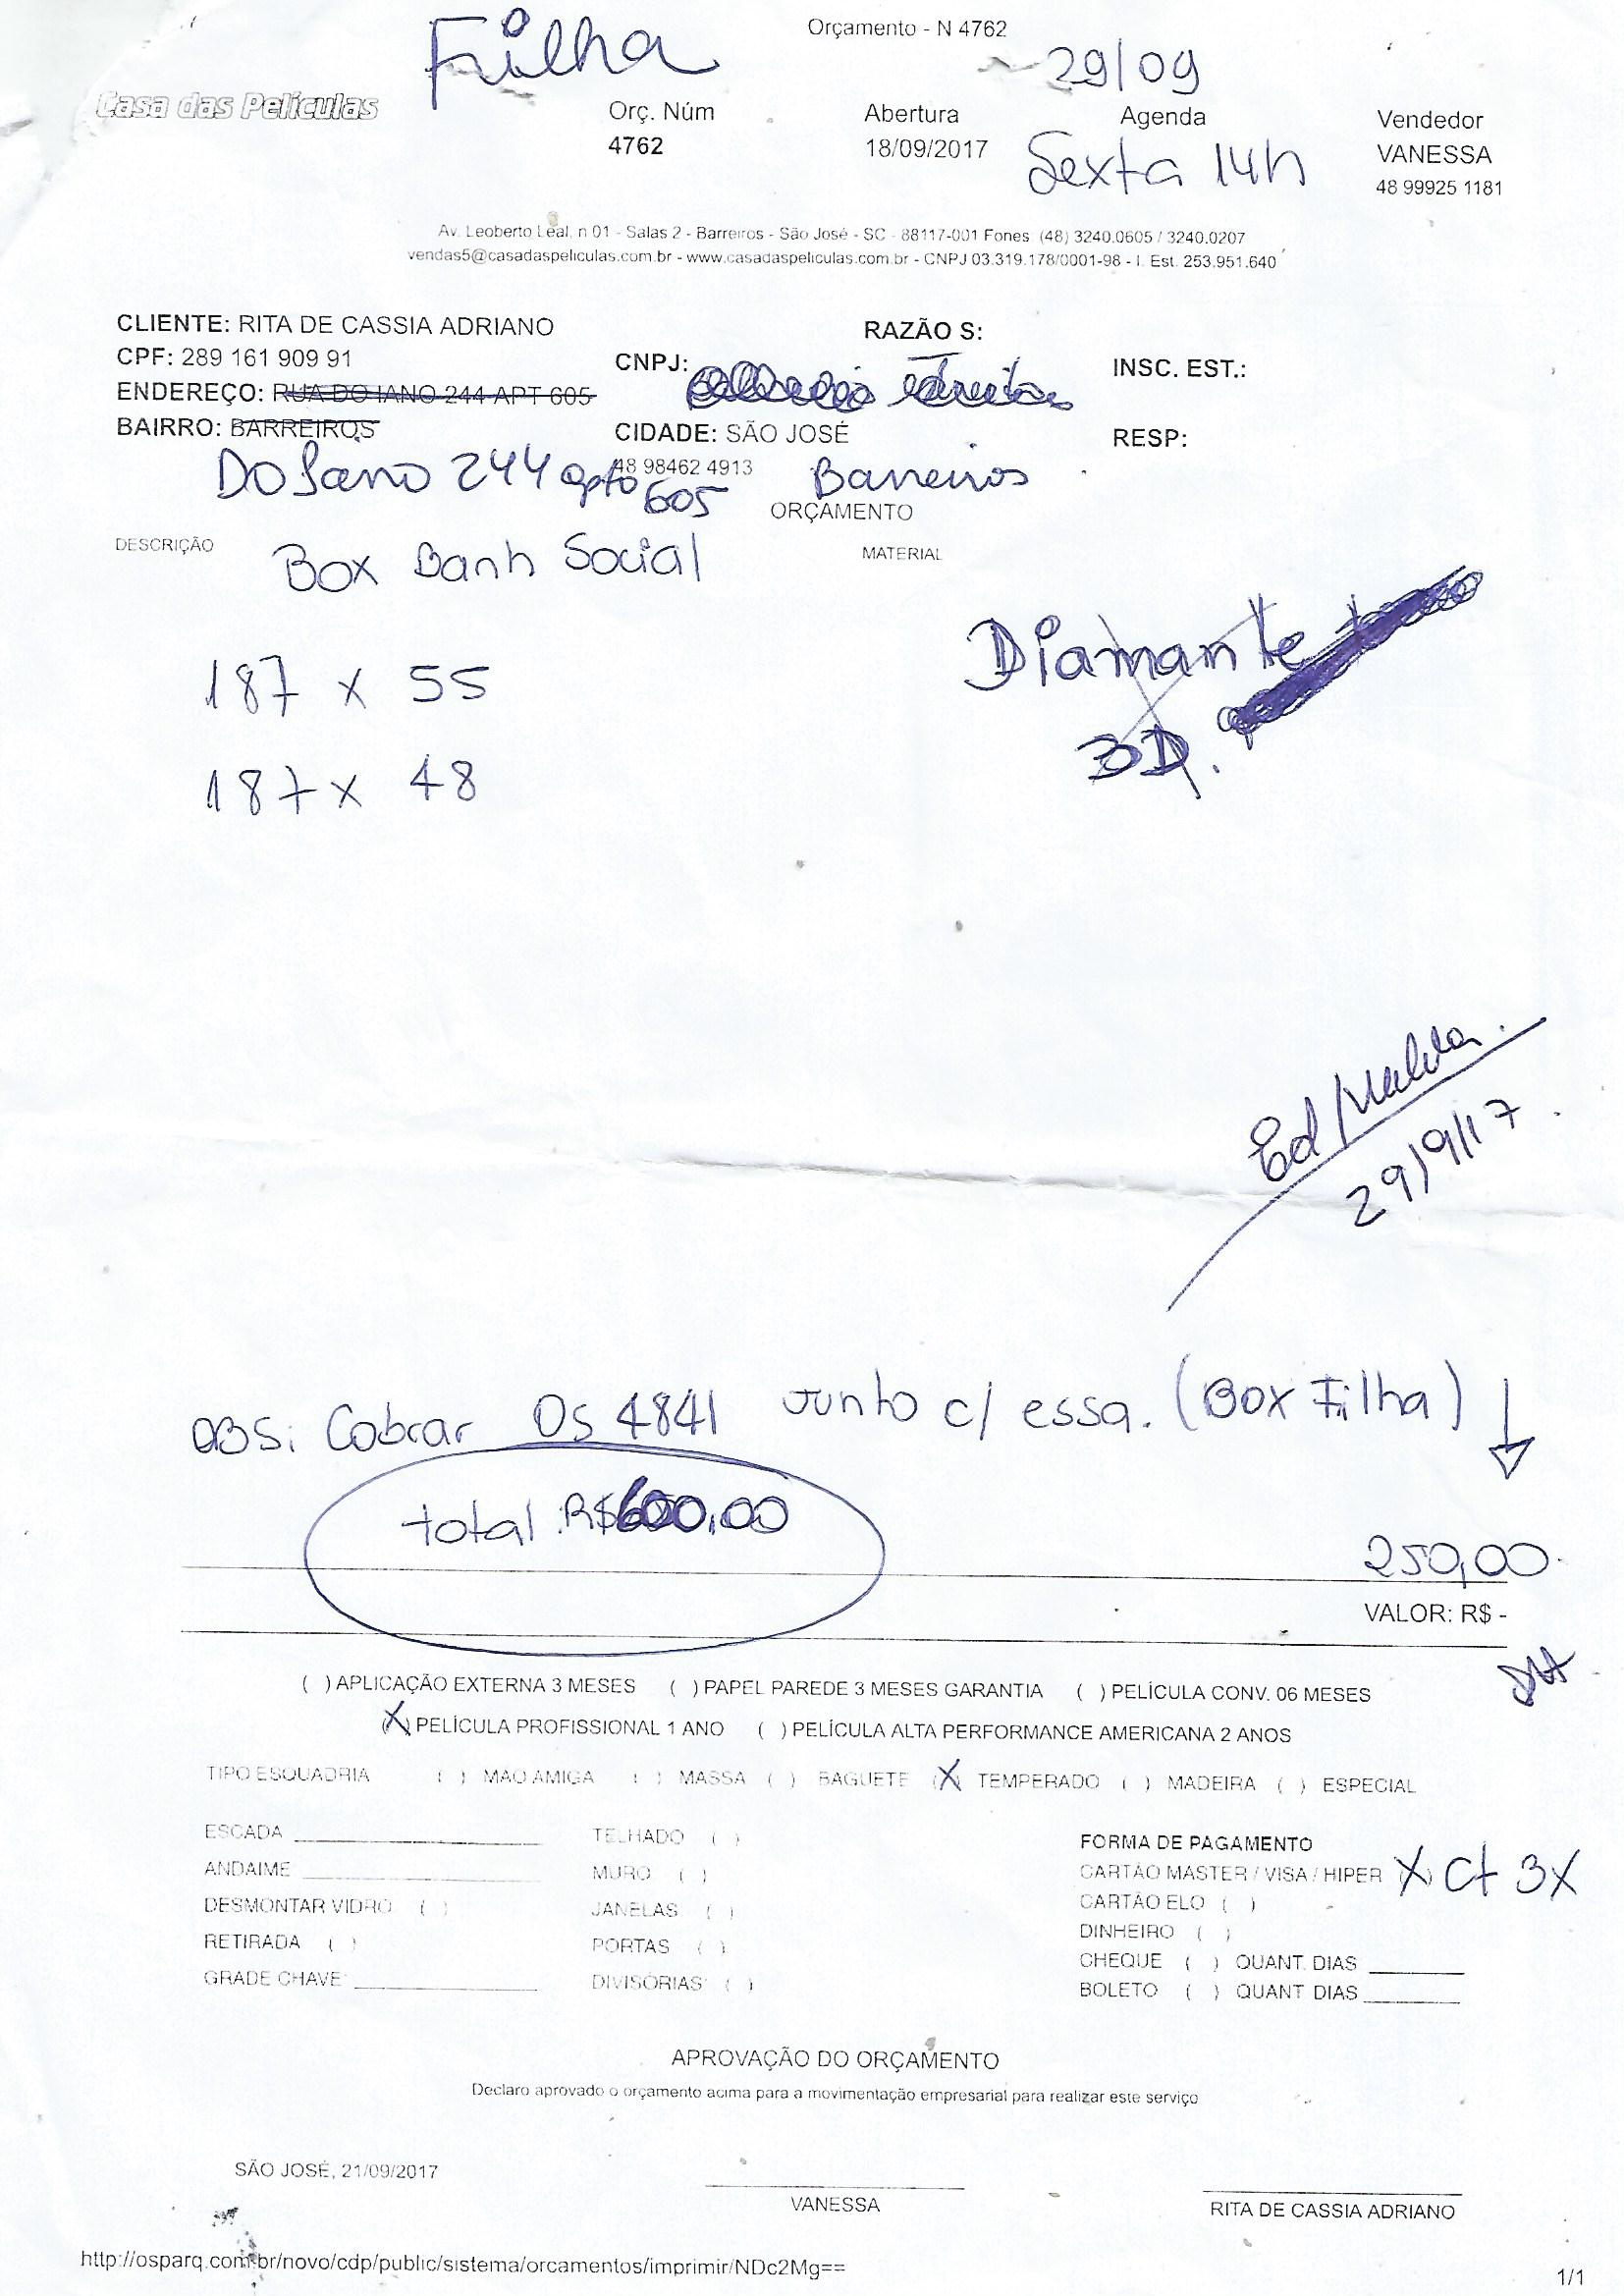 Orçamento - N 4762
Filha
29/09
Casa das Películas
Orç. Núm
4762
Abertura
18/09/2017
Agenda
Sexta 14h
Vendedor
VANESSA
48 99925 1181
Av. Leoberto Leal, n 01 - Salas 2 - Barreiros - São José - SC - 88117-001 Fones (48) 3240.0605 / 3240.0207
vendas5@casadaspeliculas.com.br - www.casadaspeliculas.com.br - CNPJ 03.319.178/0001-98 - I. Est. 253.951.640
CLIENTE: RITA DE CASSIA ADRIANO
RAZÃO S:
CPF: 289 161 909 91
CNPJ:
INSC. EST.:
ENDEREÇO: RUA DO IANO 244 APT 605
BAIRRO: BARREIROS
CIDADE: SÃO JOSÉ
RESP:
48 98462 4913
244 apto 605
Barreiros
ORÇAMENTO
DESCRIÇÃO
MATERIAL
Box Banh Social
187 x 55
187 x 48
Diamante
3D.
Ed
29/9/17
OBS: Cobrar OS 4841 Junto c/ essa. (Box Filha)
total R$600,00
250,00
VALOR: R$ -
( ) APLICAÇÃO EXTERNA 3 MESES ( ) PAPEL PAREDE 3 MESES GARANTIA ( ) PELÍCULA CONV. 06 MESES
(X) PELÍCULA PROFISSIONAL 1 ANO ( ) PELÍCULA ALTA PERFORMANCE AMERICANA 2 ANOS
TIPO ESQUADRIA ( ) MAO AMIGA ( ) MASSA ( ) BAGUETE (X) TEMPERADO ( ) MADEIRA ( ) ESPECIAL
ESCADA
TELHADO ( )
FORMA DE PAGAMENTO
ANDAIME
MURO ( )
CARTÃO MASTER / VISA / HIPER (X) Ct 3X
DESMONTAR VIDRO ( )
JANELAS ( )
CARTÃO ELO ( )
RETIRADA ( )
PORTAS ( )
DINHEIRO ( )
GRADE CHAVE
DIVISÓRIAS ( )
CHEQUE ( ) QUANT. DIAS
BOLETO ( ) QUANT DIAS
APROVAÇÃO DO ORÇAMENTO
Declaro aprovado o orçamento acima para a movimentação empresarial para realizar este serviço
SÃO JOSÉ, 21/09/2017
VANESSA
RITA DE CASSIA ADRIANO
http://osparq.com.br/novo/cdp/public/sistema/orcamentos/imprimir/NDc2Mg==
1/1